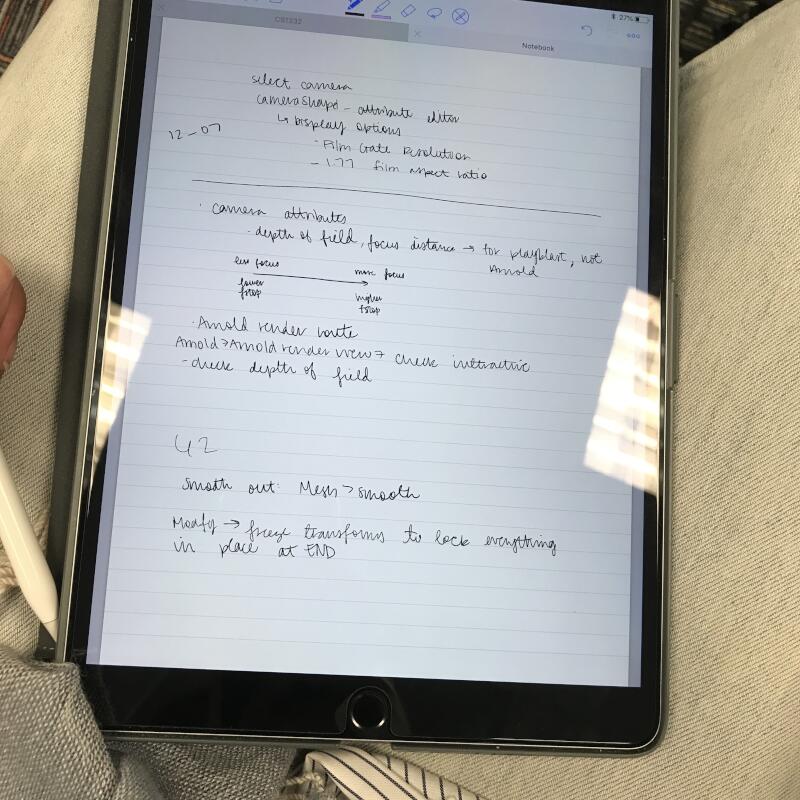 27%
CS1332
Notebook
select camera
camerashape - attribute editor
↳ Display options
12-07
- Film Gate Resolution
- 1.77 film aspect ratio
· camera attributes
· depth of field, focus distance → for playblast, not Arnold
less focus → more focus
lower fstop
higher fstop
· Arnold render
Arnold > Arnold render view → check interactive
- check depth of field
42
smooth out: Mesh > smooth
Modify → freeze transforms to lock everything
in place at END